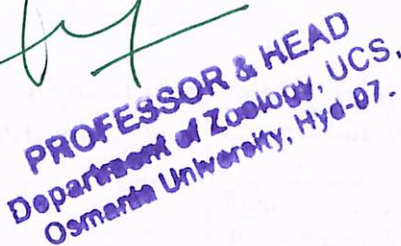 PROFESSOR & HEAD
Department of Zoology, UCS,
Osmania University, Hyd-07.